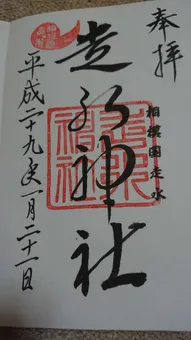 奉拝
相模国走水
走水神社
走水神社
平成二十九年一月二十一日